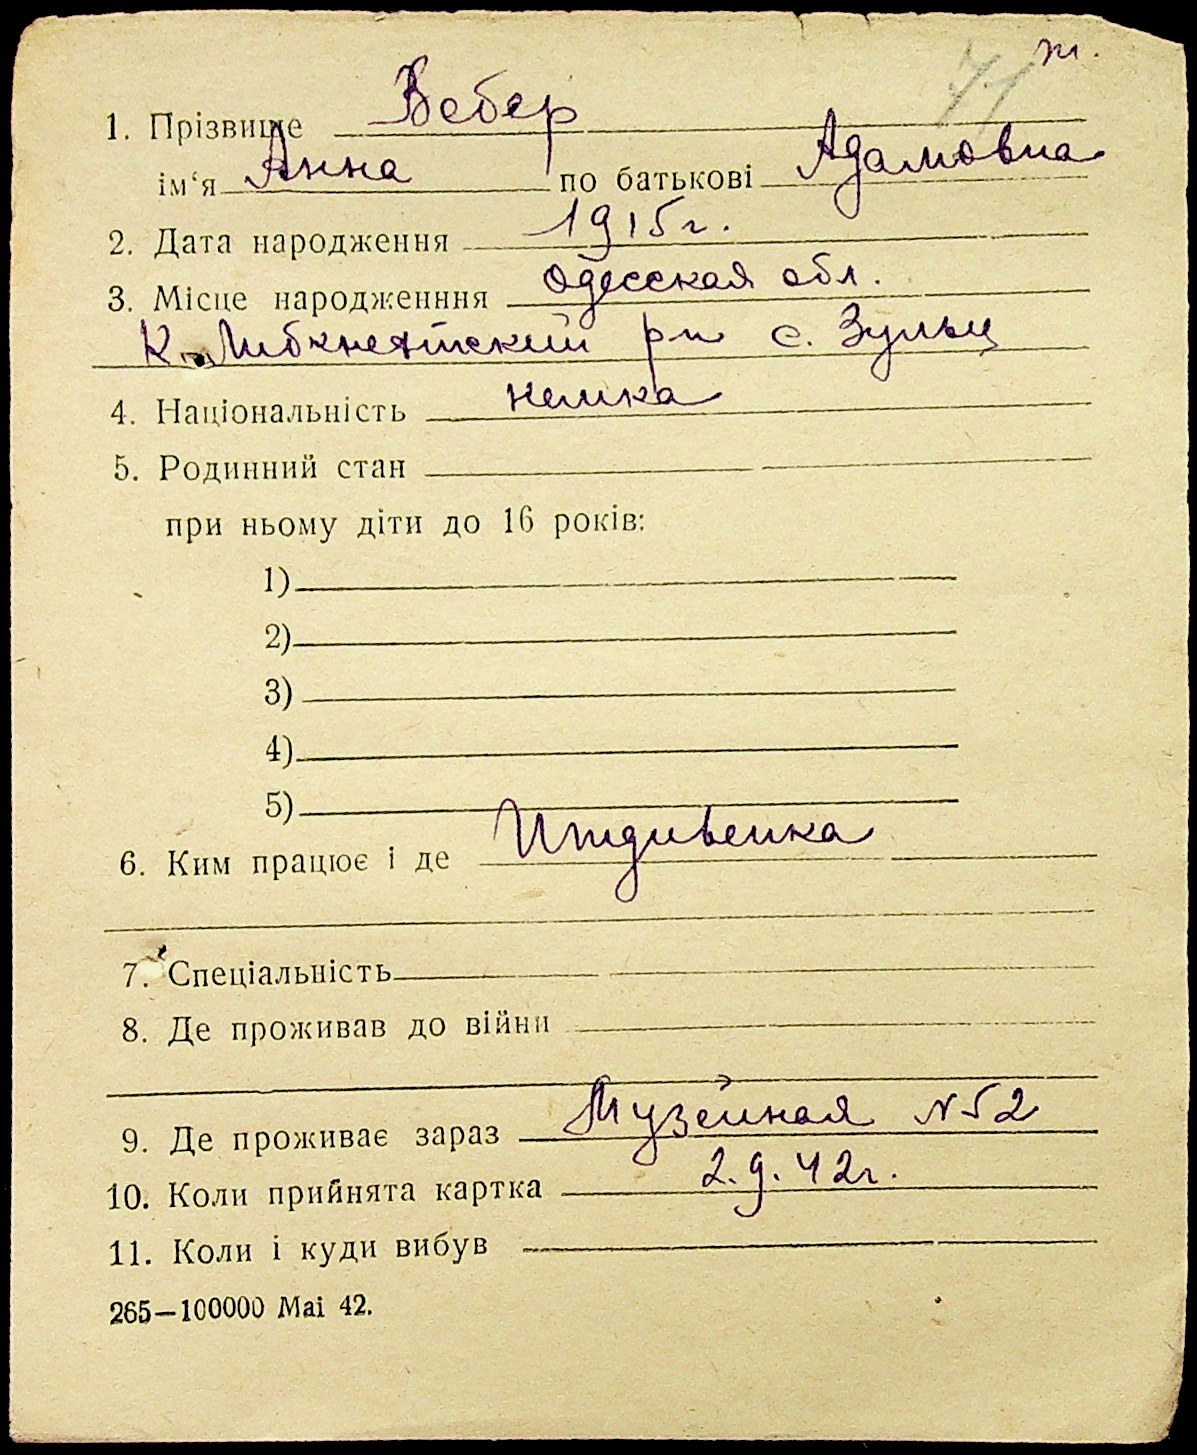 71 ж.
1. Прізвище Вебер
ім‘я Анна по батькові Адамовна
2. Дата народження 1915г.
3. Місце народженння Одесская обл.
К. Либкнехтский рн с. Зульц
4. Національність немка
5. Родинний стан
при ньому діти до 16 років:
1)
2)
3)
4)
5)
6. Ким працює і де Иждивенка
7. Спеціальність
8. Де проживав до війни
9. Де проживає зараз Музейная № 52
10. Коли прийнята картка 2.9.42г.
11. Коли і куди вибув
265—100000 Маі 42.